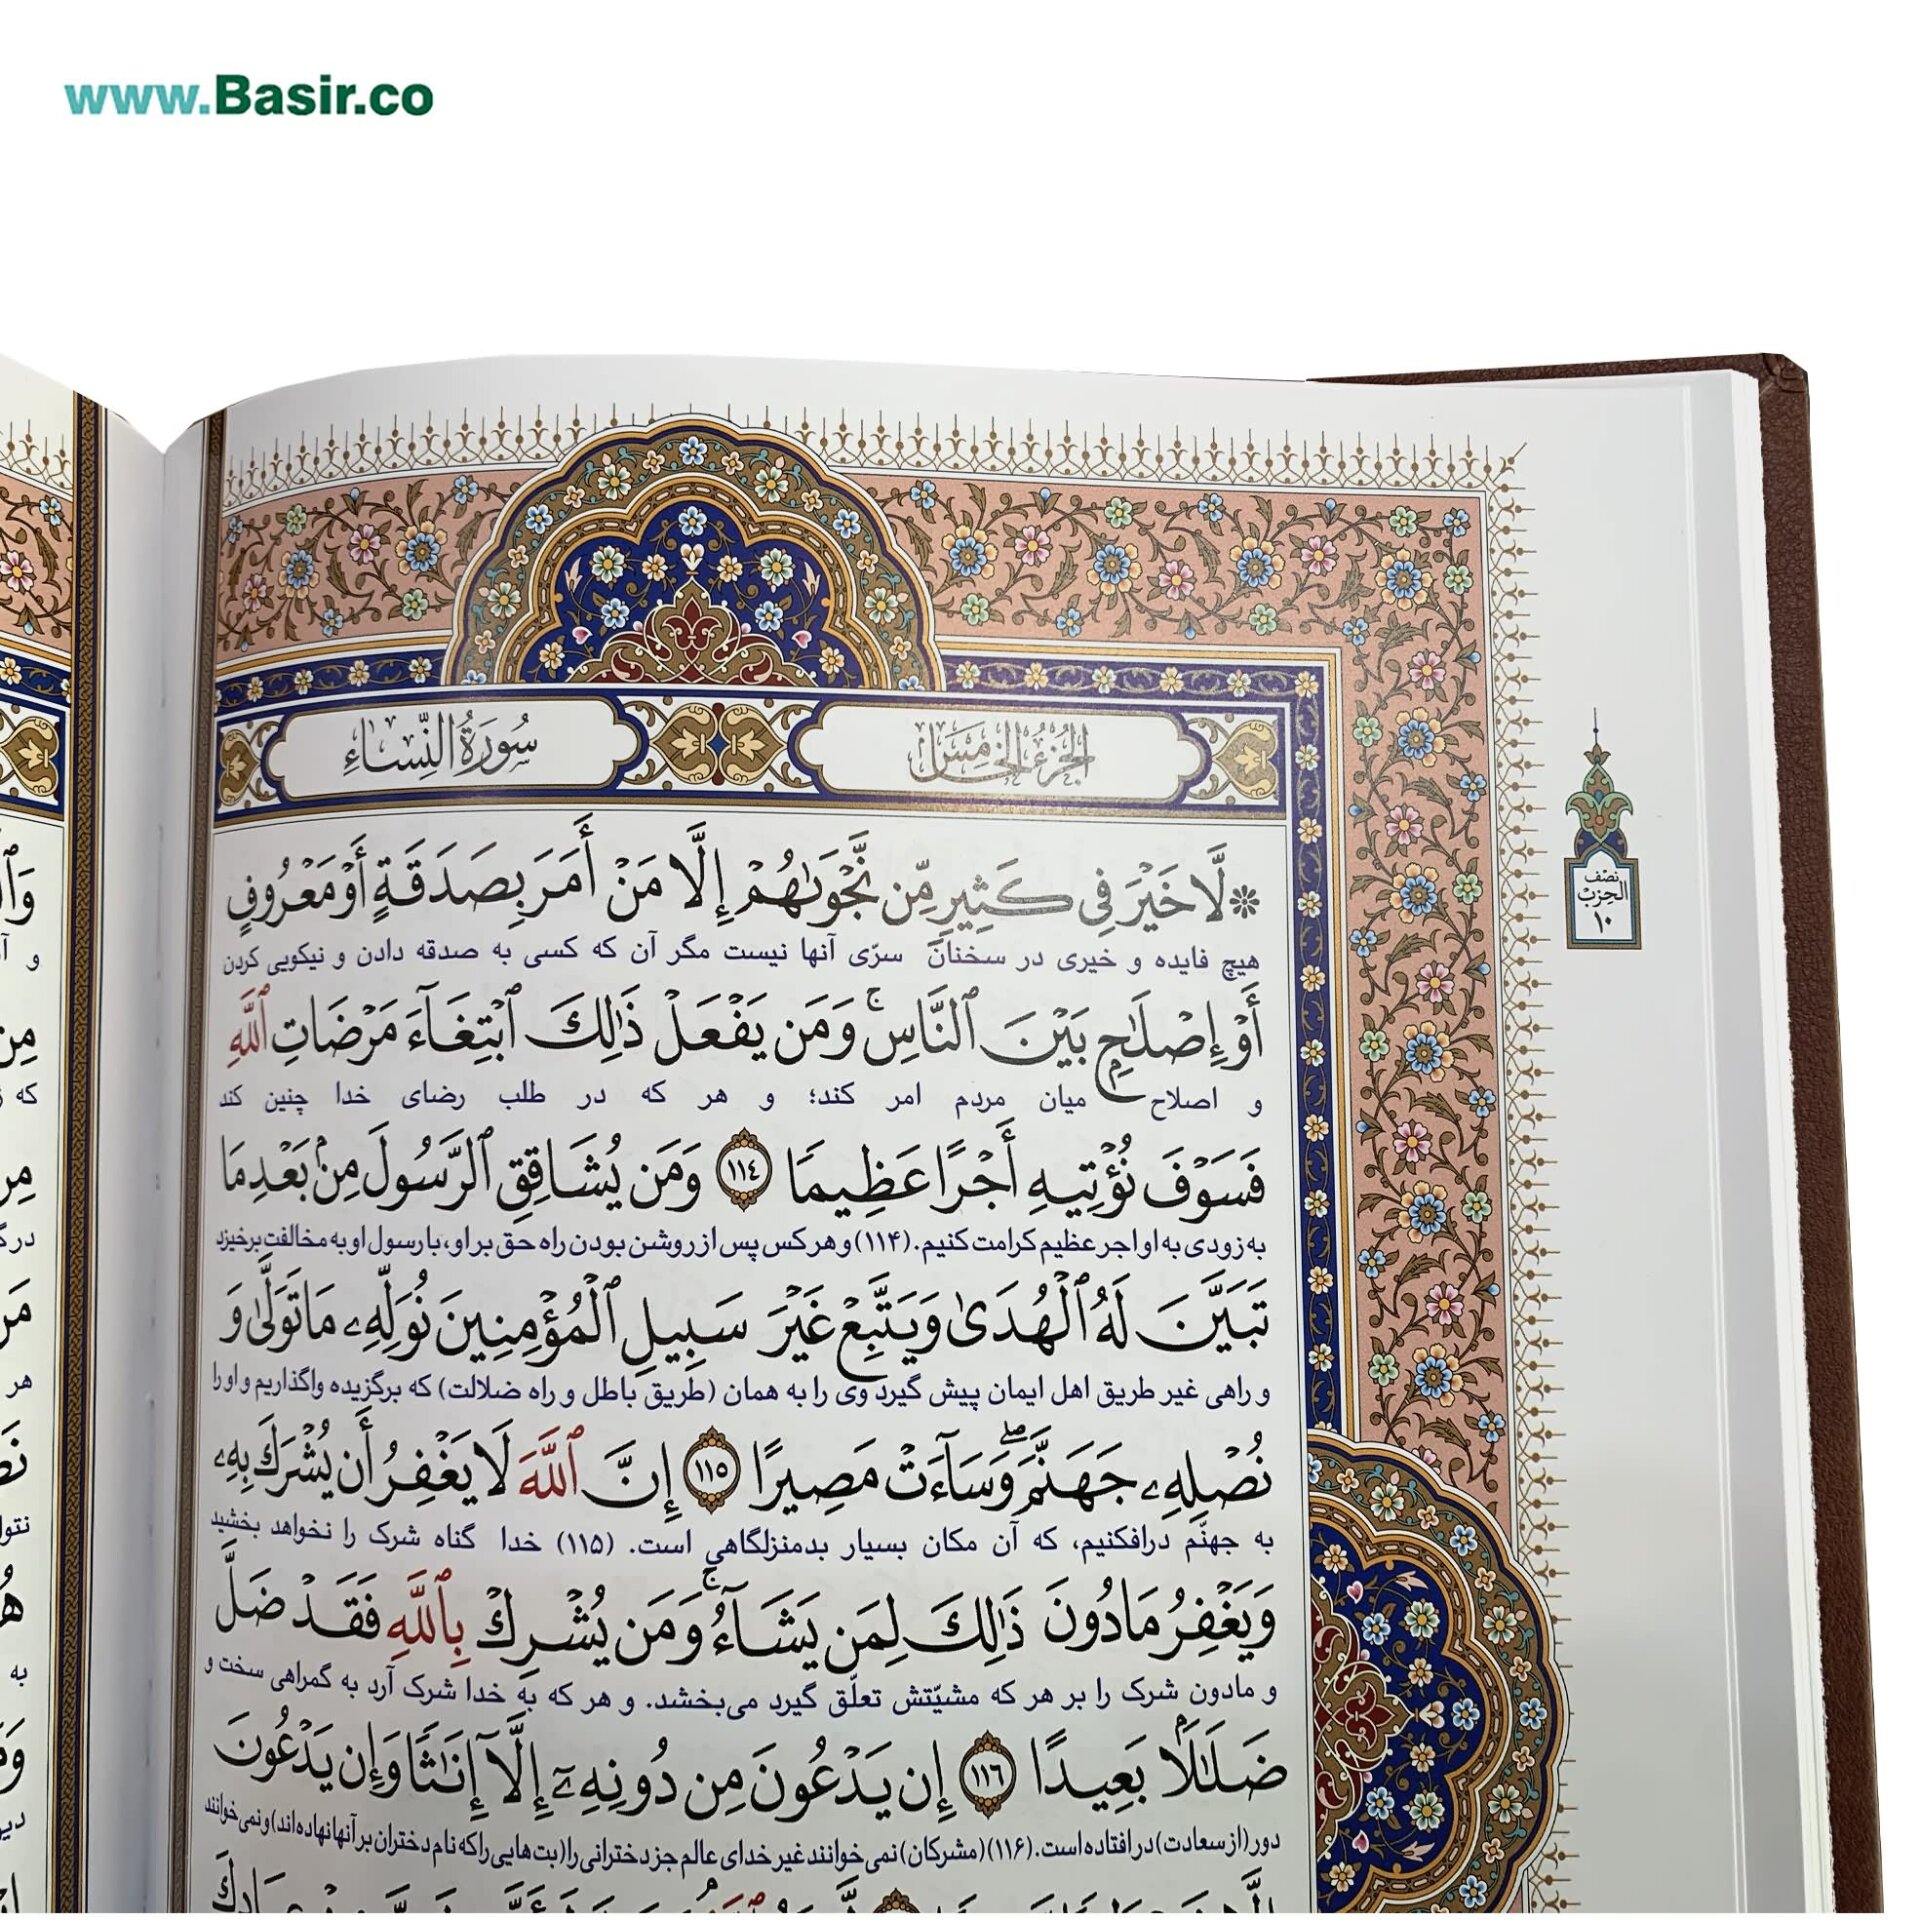 www.Basir.co
الجزء الخامس
سورة النساء
نصف
الحزب
١٠
❊ لَّا خَيْرَ فِي كَثِيرٍ مِّن نَّجْوَىٰهُمْ إِلَّا مَنْ أَمَرَ بِصَدَقَةٍ أَوْ مَعْرُوفٍ
هیچ فایده و خیری در سخنان سرّی آنها نیست مگر آن که کسی به صدقه دادن و نیکویی کردن
أَوْ إِصْلَٰحٍۭ بَيْنَ ٱلنَّاسِ ۚ وَمَن يَفْعَلْ ذَٰلِكَ ٱبْتِغَآءَ مَرْضَاتِ ٱللَّهِ
و اصلاح میان مردم امر کند؛ و هر که در طلب رضای خدا چنین کند
فَسَوْفَ نُؤْتِيهِ أَجْرًا عَظِيمًا ١١٤ وَمَن يُشَاقِقِ ٱلرَّسُولَ مِنۢ بَعْدِ مَا
به زودی به او اجر عظیم کرامت کنیم. (۱۱۴) و هر کس پس از روشن بودن راه حق بر او، با رسول او به مخالفت برخیزد
تَبَيَّنَ لَهُ ٱلْهُدَىٰ وَيَتَّبِعْ غَيْرَ سَبِيلِ ٱلْمُؤْمِنِينَ نُوَلِّهِۦ مَا تَوَلَّىٰ وَ
و راهی غیر طریق اهل ایمان پیش گیرد وی را به همان (طریق باطل و راه ضلالت) که برگزیده واگذاریم و او را
نُصْلِهِۦ جَهَنَّمَ ۖ وَسَآءَتْ مَصِيرًا ١١٥ إِنَّ ٱللَّهَ لَا يَغْفِرُ أَن يُشْرَكَ بِهِۦ
به جهنّم درافکنیم، که آن مکان بسیار بدمنزلگاهی است. (۱۱۵) خدا گناه شرک را نخواهد بخشید
وَيَغْفِرُ مَا دُونَ ذَٰلِكَ لِمَن يَشَآءُ ۚ وَمَن يُشْرِكْ بِٱللَّهِ فَقَدْ ضَلَّ
و مادون شرک را بر هر که مشیّتش تعلّق گیرد می‌بخشد. و هر که به خدا شرک آرد به گمراهی سخت و
ضَلَٰلًۢا بَعِيدًا ١١٦ إِن يَدْعُونَ مِن دُونِهِۦٓ إِلَّآ إِنَٰثًا وَإِن يَدْعُونَ
دور (از سعادت) در افتاده است. (۱۱۶) (مشرکان) نمی‌خوانند غیر خدای عالم جز دخترانی را (بت‌هایی را که نام دختران بر آنها نهاده‌اند) و نمی‌خوانند